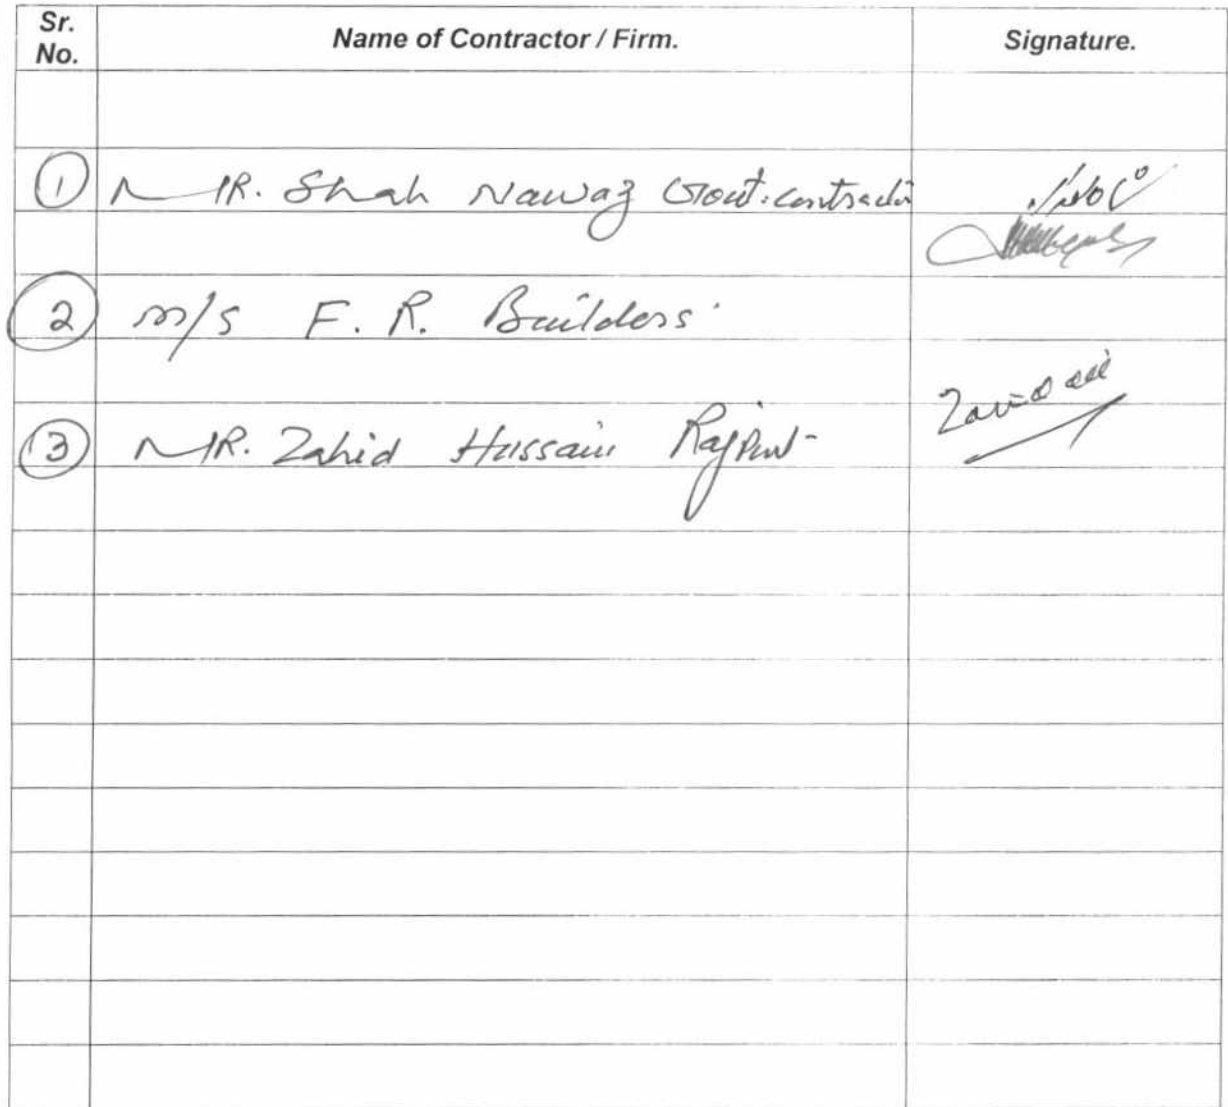 Sr. No. Name of Contractor / Firm. Signature.
1 MR. Shah Nawaz Govt: contractor
2 M/S F. R. Builders
3 MR. Zahid Hussain Rajput